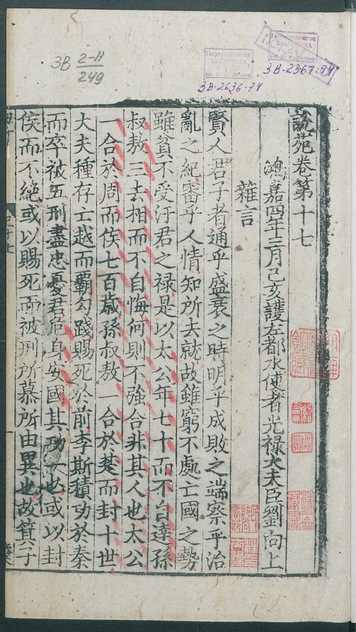 3B 2-11/249
3B-2636-74
3B-2367-74
說苑卷第十七
鴻嘉四年三月己亥護左都水使者光祿大夫臣劉向上
雜言
賢人君子者通乎盛衰之時明乎成敗之端察乎治
亂之紀審乎人情知所去就故雖窮不處亡國之勢
雖貧不受汙君之祿是以太公年七十而不自達孫
叔敖三去相而不自悔何則不強合非其人也太公
一合於周而侯七百歲孫叔敖一合於楚而封十世
大夫種存亡越而霸勾踐賜死於前李斯積功於秦
而卒被五刑盡忠憂君危身安國其功一也或以封
侯而不絕或以賜死而被刑所慕所由異也故箕子